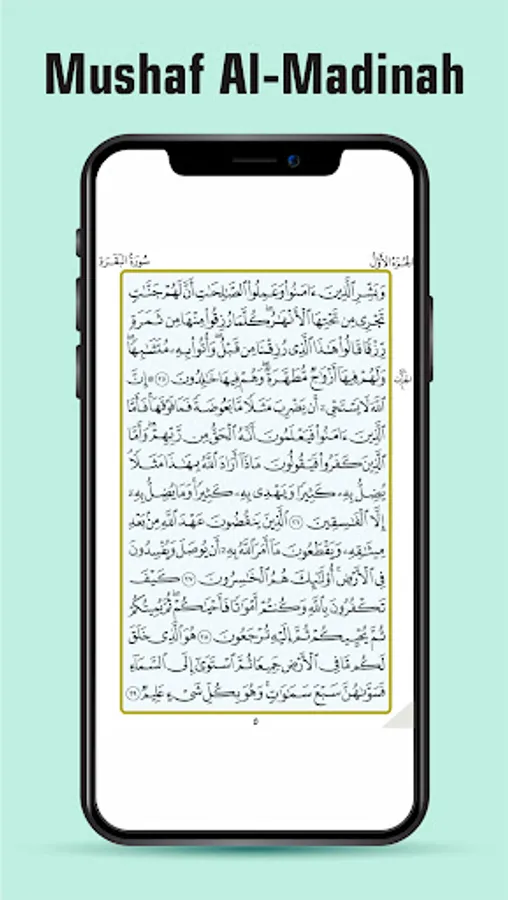 Mushaf Al-Madinah
الجزء الأول
سورة البقرة
وَبَشِّرِ ٱلَّذِينَ ءَامَنُوا۟ وَعَمِلُوا۟ ٱلصَّٰلِحَٰتِ أَنَّ لَهُمْ جَنَّٰتٍ
تَجْرِى مِن تَحْتِهَا ٱلْأَنْهَٰرُ ۖ كُلَّمَا رُزِقُوا۟ مِنْهَا مِن ثَمَرَةٍ
رِّزْقًا قَالُوا۟ هَٰذَا ٱلَّذِى رُزِقْنَا مِن قَبْلُ ۖ وَأُتُوا۟ بِهِۦ مُتَشَٰبِهًا ۖ
وَلَهُمْ فِيهَآ أَزْوَٰجٌ مُّطَهَّرَةٌ ۖ وَهُمْ فِيهَا خَٰلِدُونَ ٢٥ ۞ إِنَّ
ٱللَّهَ لَا يَسْتَحْىِۦٓ أَن يَضْرِبَ مَثَلًا مَّا بَعُوضَةً فَمَا فَوْقَهَا ۚ فَأَمَّا
ٱلَّذِينَ ءَامَنُوا۟ فَيَعْلَمُونَ أَنَّهُ ٱلْحَقُّ مِن رَّبِّهِمْ ۖ وَأَمَّا
ٱلَّذِينَ كَفَرُوا۟ فَيَقُولُونَ مَاذَآ أَرَادَ ٱللَّهُ بِهَٰذَا مَثَلًا ۘ
يُضِلُّ بِهِۦ كَثِيرًا وَيَهْدِى بِهِۦ كَثِيرًا ۚ وَمَا يُضِلُّ بِهِۦٓ
إِلَّا ٱلْفَٰسِقِينَ ٢٦ ٱلَّذِينَ يَنقُضُونَ عَهْدَ ٱللَّهِ مِنۢ بَعْدِ
مِيثَٰقِهِۦ وَيَقْطَعُونَ مَآ أَمَرَ ٱللَّهُ بِهِۦٓ أَن يُوصَلَ وَيُفْسِدُونَ
فِى ٱلْأَرْضِ ۚ أُو۟لَٰٓئِكَ هُمُ ٱلْخَٰسِرُونَ ٢٧ كَيْفَ
تَكْفُرُونَ بِٱللَّهِ وَكُنتُمْ أَمْوَٰتًا فَأَحْيَٰكُمْ ۖ ثُمَّ يُمِيتُكُمْ
ثُمَّ يُحْيِيكُمْ ثُمَّ إِلَيْهِ تُرْجَعُونَ ٢٨ هُوَ ٱلَّذِى خَلَقَ
لَكُم مَّا فِى ٱلْأَرْضِ جَمِيعًا ثُمَّ ٱسْتَوَىٰٓ إِلَى ٱلسَّمَآءِ
فَسَوَّىٰهُنَّ سَبْعَ سَمَٰوَٰتٍ ۚ وَهُوَ بِكُلِّ شَىْءٍ عَلِيمٌ ٢٩
٥